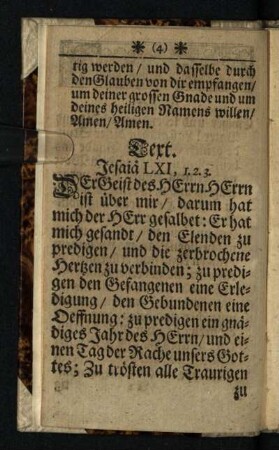 * (4) *
tig werden / und dasselbe durch
den Glauben von dir empfangen /
um deiner grossen Gnade und um
deines heiligen Namens willen /
Amen / Amen.
Text.
Jesaiä LXI, 1. 2. 3.
DEr Geist des HErrn HErrn
ist über mir / darum hat
mich der HErr gesalbet: Er hat
mich gesandt / den Elenden zu
predigen / und die zerbrochene
Hertzen zu verbinden; zu predi-
gen den Gefangenen eine Erle-
digung / den Gebundenen eine
Oeffnung: zu predigen ein gnä-
diges Jahr des HErrn / und ei-
nen Tag der Rache unsers Got-
tes; Zu trösten alle Traurigen
zu